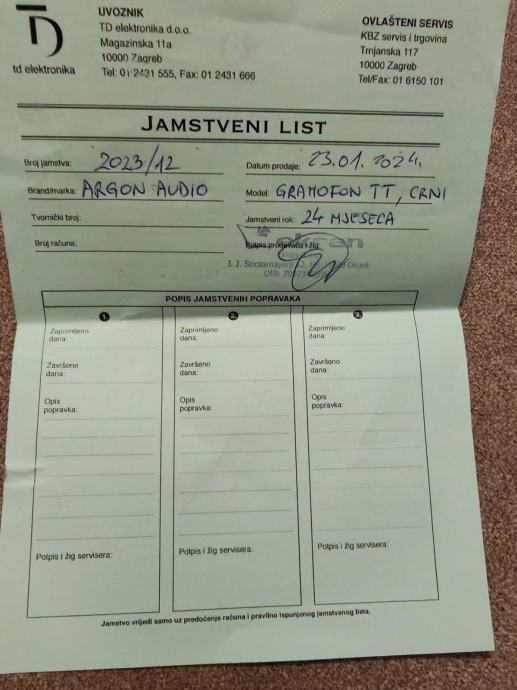 UVOZNIK
TD elektronika d.o.o.
Magazinska 11a
10000 Zagreb
Tel: 01 2431 555, Fax: 01 2431 666
td elektronika
OVLAŠTENI SERVIS
KBZ servis i trgovina
Trnjanska 117
10000 Zagreb
Tel/Fax: 01 6150 101
JAMSTVENI LIST
Broj jamstva: 2023/12
Datum prodaje: 23.01.2024.
Brand/marka: ARGON AUDIO
Model: GRAMOFON TT, CRNI
Tvornički broj:
Jamstveni rok: 24 MJESECA
Broj računa:
Potpis prodavača i žig:
J. J. Strossmayera Osijek
OIB:
POPIS JAMSTVENIH POPRAVAKA
1.
2.
3.
Zaprimljeno dana:
Zaprimljeno dana:
Zaprimljeno dana:
Završeno dana:
Završeno dana:
Završeno dana:
Opis popravka:
Opis popravka:
Opis popravka:
Potpis i žig servisera:
Potpis i žig servisera:
Potpis i žig servisera:
Jamstvo vrijedi samo uz predočenje računa i pravilno ispunjenog jamstvenog lista.